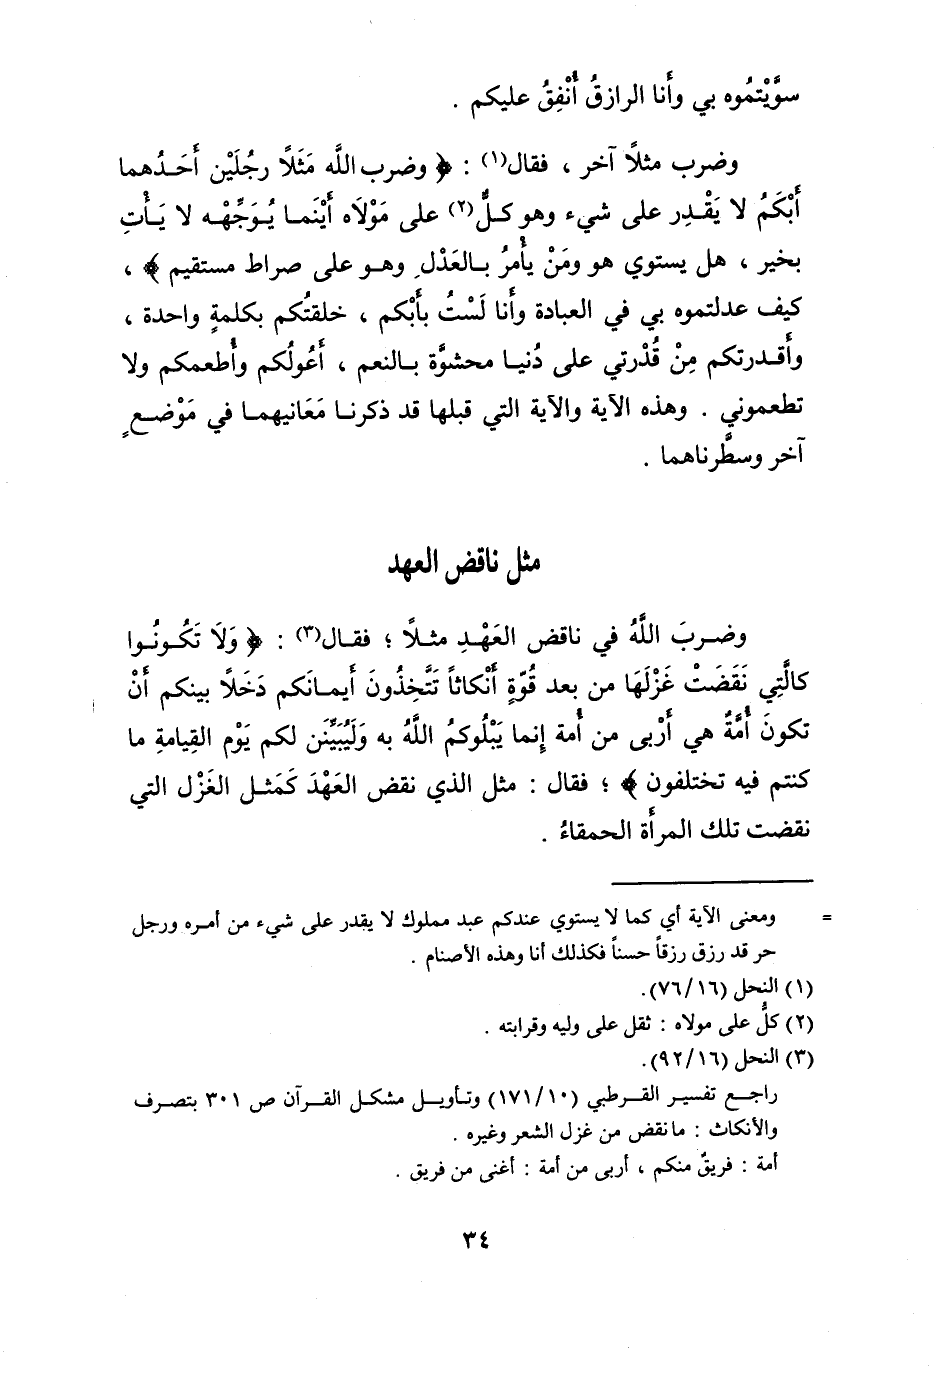 سوَّيْتمُوه بي وأَنا الرازقُ أُنْفِقُ عليكم .
وضرب مثلاً آخر ، فقال(١) : ﴿ وضرب اللَّه مَثَلًا رجُلَيْن أَحَدُهما
أَبْكَمُ لا يَقْدِر على شيء وهو كلٌّ(٢) على مَوْلَاه أَيْنَما يُوَجِّهْه لا يَأْتِ
بخير ، هل يستوي هو ومَنْ يأْمرُ بالعَدْل وهو على صراط مستقيم ﴾ ،
كيف عدلتموه بي في العبادة وأَنا لَسْتُ بأَبْكم ، خلقتُكم بكلمةٍ واحدة ،
وأَقدرتكم مِنْ قُدْرتي على دُنيا محشوَّة بالنعم ، أَعُولُكم وأُطعمكم ولا
تطعموني . وهذه الآية والآية التي قبلها قد ذكرنا مَعَانيهما في مَوْضعٍ
آخر وسطَّرناهما .
مثل ناقض العهد
وضربَ اللَّهُ في ناقض العَهْدِ مثلًا ؛ فقال(٣) : ﴿ وَلَا تَكُونُوا
كالَّتِي نَقَضَتْ غَزْلَهَا من بعد قُوَّةٍ أَنْكاثاً تَتَّخِذُونَ أَيمانَكم دَخَلًا بينكم أَنْ
تكونَ أُمَّةٌ هي أَرْبى من أُمة إِنما يَبْلُوكمُ اللَّهُ به وَلَيُبَيِّنَن لكم يَوْم القِيامةِ ما
كنتم فيه تختلفون ﴾ ؛ فقال : مثل الذي نقض العَهْدَ كَمَثل الغَزْل التي
نقضت تلك المرأَة الحمقاءُ .
= ومعنى الآية أي كما لا يستوي عندكم عبد مملوك لا يقدر على شيء من أمره ورجل
حر قد رزق رزقاً حسناً فكذلك أنا وهذه الأصنام .
(١) النحل (٧٦/١٦).
(٢) كلٌّ على مولاه : ثقل على وليه وقرابته .
(٣) النحل (٩٢/١٦).
راجع تفسير القرطبي (١٧١/١٠) وتأويل مشكل القرآن ص ٣٠١ بتصرف
والأنكاث : ما نقض من غزل الشعر وغيره .
أمة : فريقٌ منكم ، أربى من أمة : أغنى من فريق .
٣٤